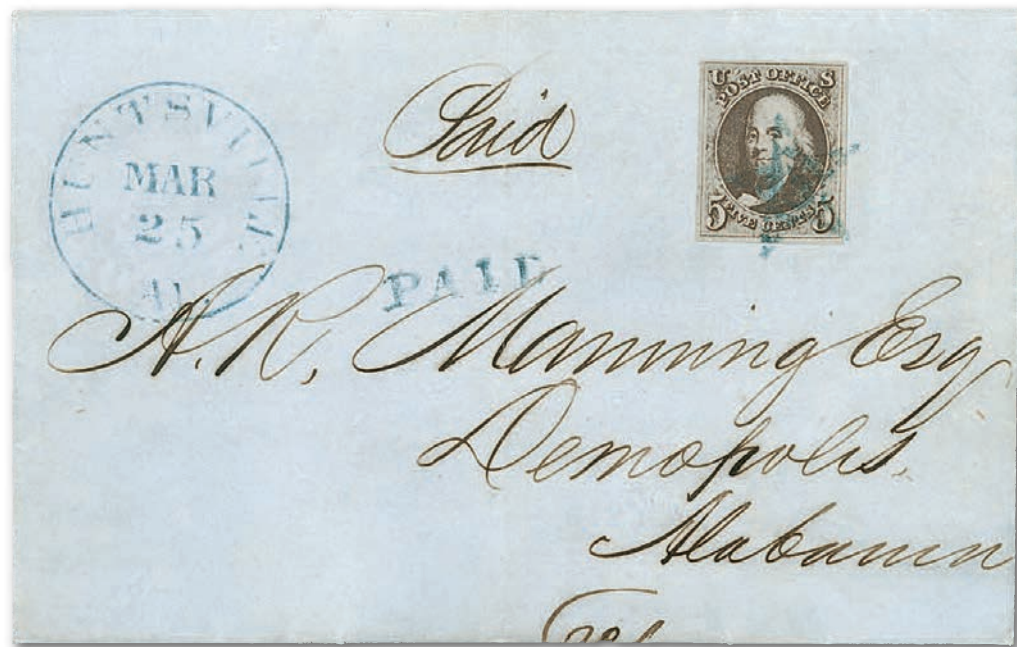 HUNTSVILLE
MAR
25
AL.
Paid
PAID
U S
POST OFFICE
5 FIVE CENTS 5
A. R. Manning Esq
Demopolis.
Alabama